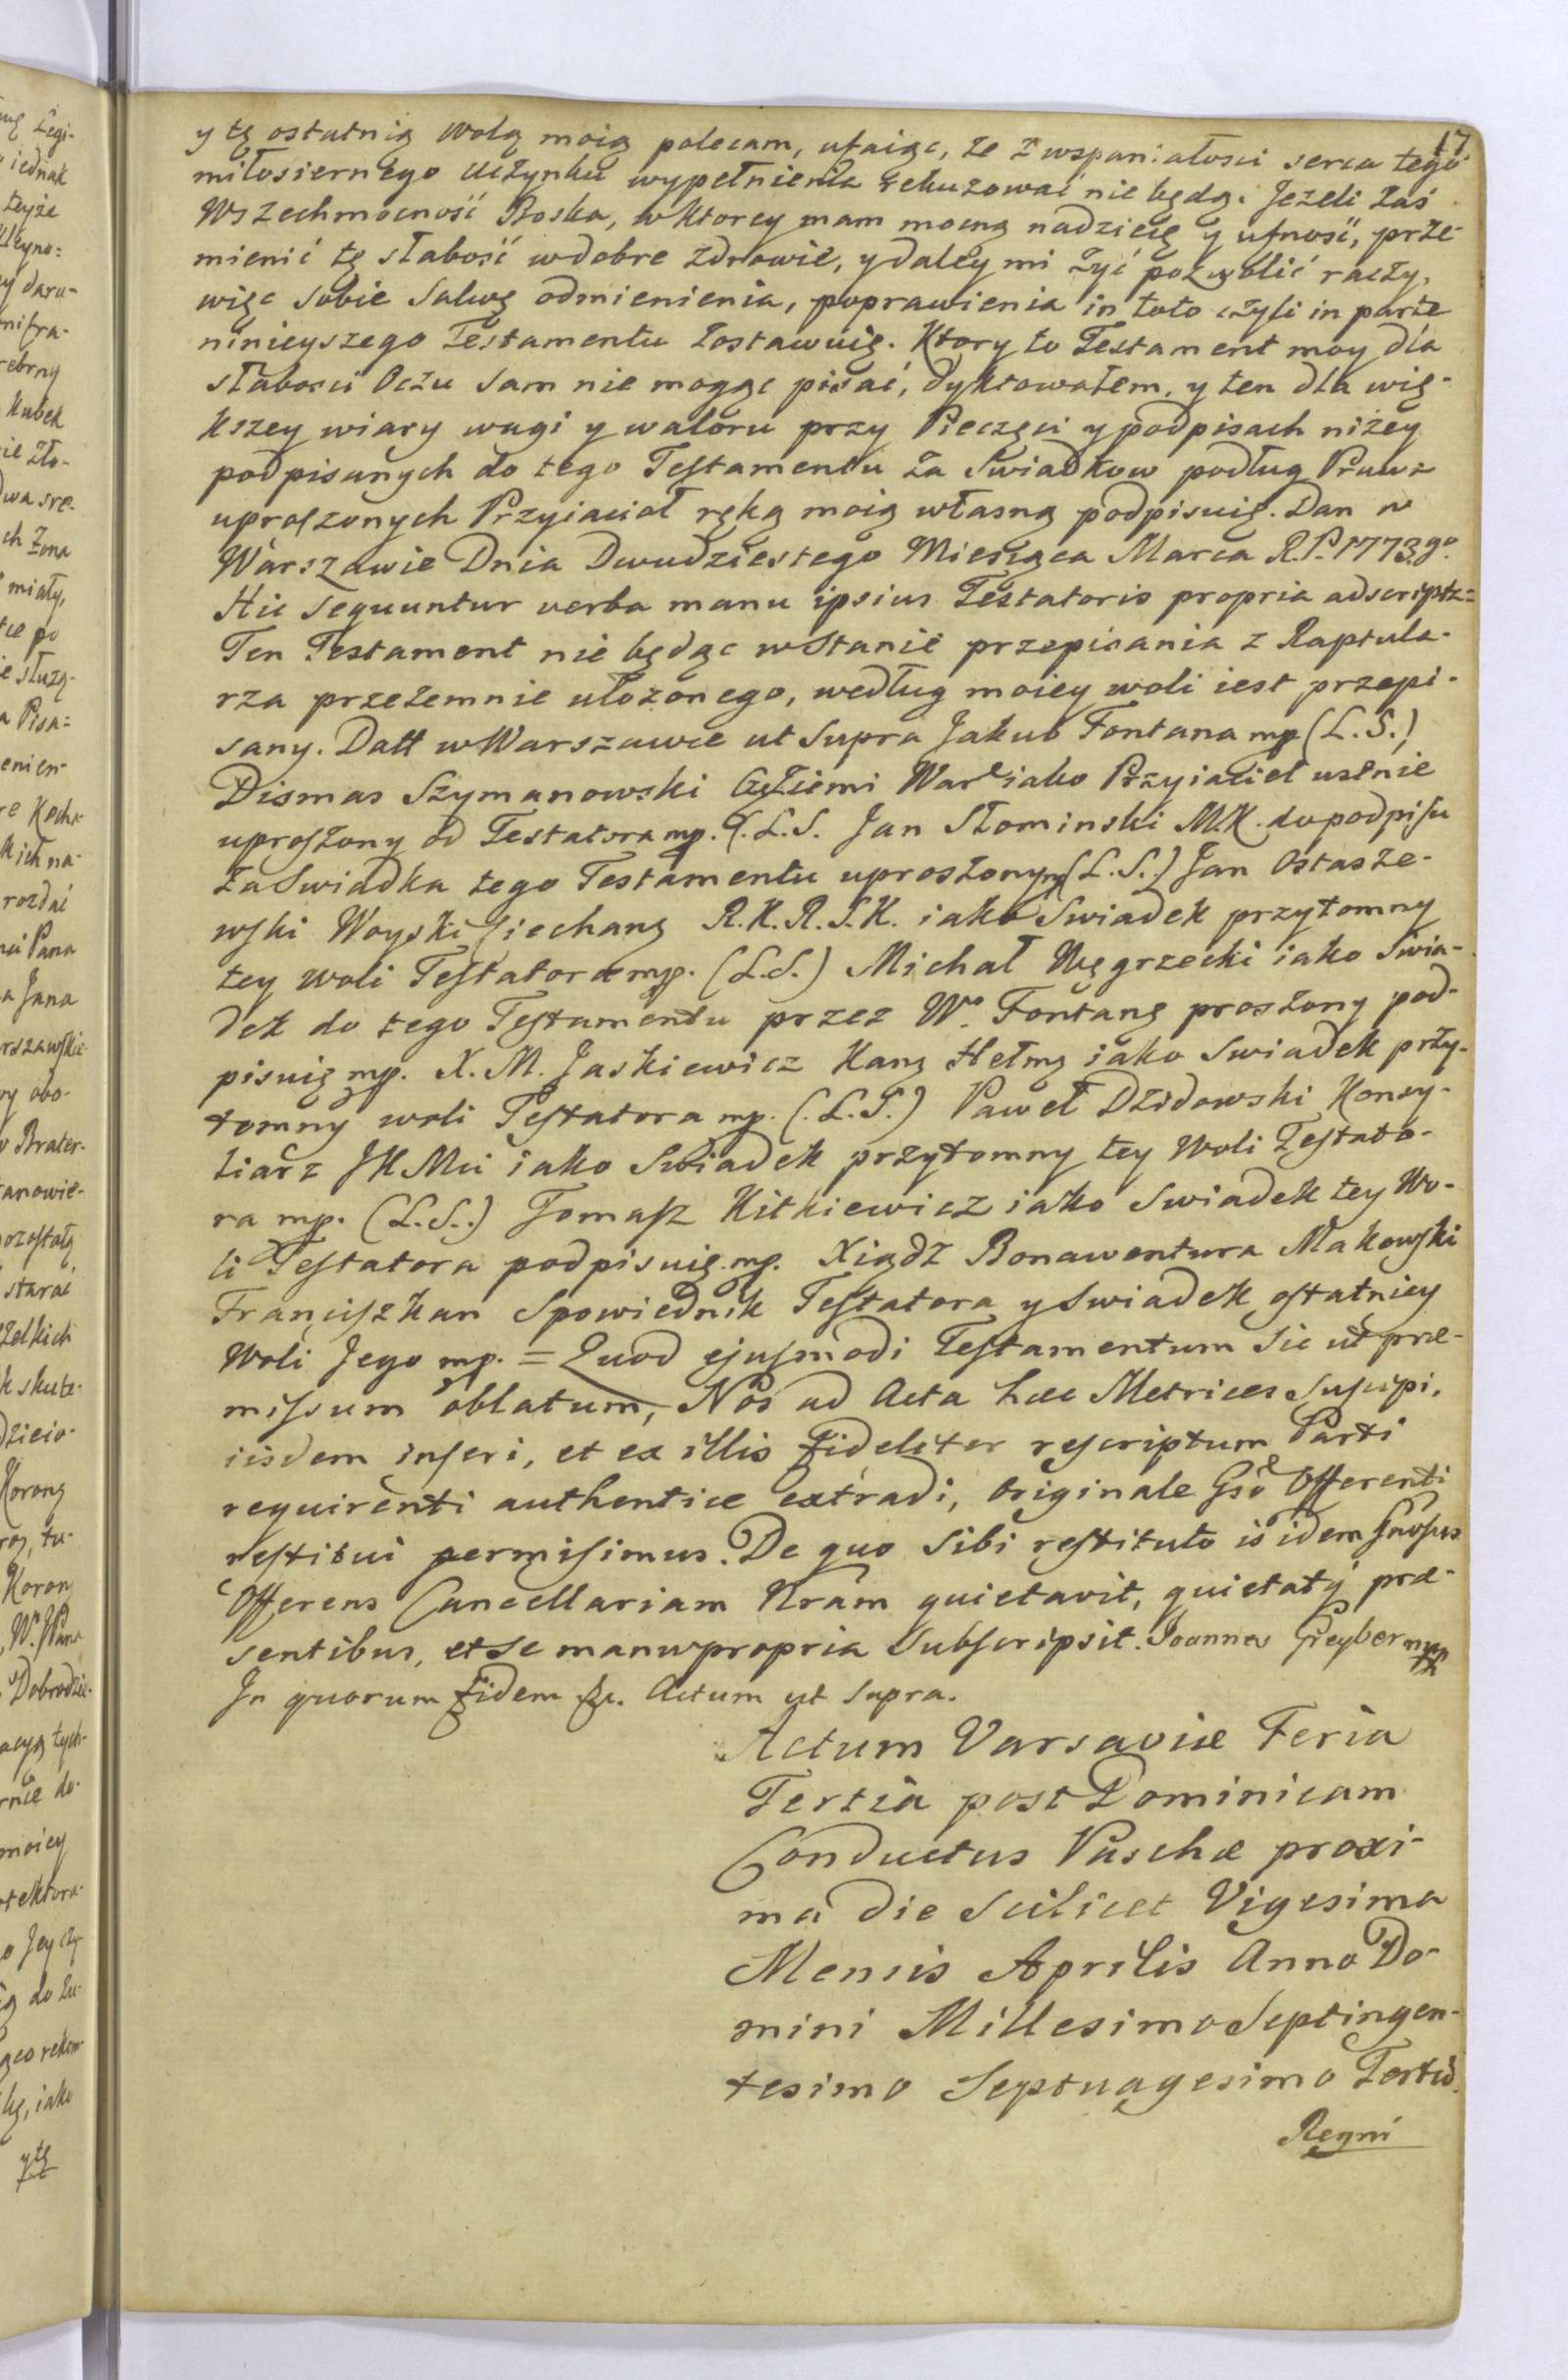 17
y tę ostatnią wolą moią polecam, ufaiąc, że z wspaniałosci serca tego
miłosiernego uczynku wypełnienia rekuzować nie będą. Jeżeli zaś
Wszechmocność Boska, w ktorey mam mocną nadzieię y ufność, prze-
mienić tę słabość w dobre zdrowie, y daley mi żyć pozwolić raczy,
więc sobie Salwę odmienienia, poprawienia in toto czyli in parte
ninieyszego Testamentu zostawuię. Ktory to Testament moy dla
słabosci Oczu sam nie mogąc pisać, dyktowałem, y ten dla wię-
kszey wiary wagi y waloru przy Pieczęci y podpisach niżey
podpisanych do tego Testamentu za Swiadkow podług Prawa
uproszonych Przyiacioł ręką moią własną podpisuię. Dan w
Warszawie Dnia Dwudziestego Miesiąca Marca R.P. 1773go.
Hic sequuntur verba manu ipsius Testatoris propria adscripta=
Ten Testament nie będąc w Stanie przepisania z Raptula-
rza przezemnie ułożonego, według moiey woli iest przepi-
sany. Datt w Warszawie ut supra Jakub Fontana mp (L.S.)
Dismas Szymanowski Ziemi iako Przyiaciel ustnie
uproszony od Testatora mp. (.L.S. Jan Słominski M.K. do podpisu
za Swiadka tego Testamentu uproszony mp (L.S.) Jan Ostasze-
wski Woyski Ciechang R.K.R.S.K. iako Swiadek przytomny
tey woli Testatora mp. (L.S.) Michał Węgrzecki iako Swia-
dek do tego Testamentu przez Wo. Fontanę proszony pod-
pisuię mp. X. M. Jaskiewicz Kang Hełmg iako Swiadek przy-
tomny woli Testatora mp. (.L.S.) Paweł Dzidowski Konsy-
liarz JKMci iako Swiadek przytomny tey Woli Testato-
ra mp. (L.S.) Tomasz Kitkiewicz iako Swiadek tey Wo-
li Testatora podpisuię mp. Xiądz Bonawentura Makowski
Franciszkan Spowiednik Testatora y Swiadek ostatniey
Woli Jego mp. = Quod ejusmodi Testamentum sic ut præ-
missum oblatum, Nos ad Acta hæc Metrices Suscipi,
iisdem inseri, et ex illis fideliter rescriptum Parti
requirenti authentice extradi, Originale Gso Offerenti
restitui permisimus. De quo sibi restituto is idem Gnosus
Offerens Cancellariam Nram quietavit, quietatq præ-
sentibus, et se manu propria subscripsit. Joannes Greyber mp
In quorum fidem &c. Actum ut supra.
Actum Varsaviæ Feria
Tertia post Dominicam
Conductus Paschæ proxi-
ma die scilicet Vigesima
Mensis Aprilis Anno Do-
mini Millesimo Septingen-
tesimo Septuagesimo Tertio.
Regni